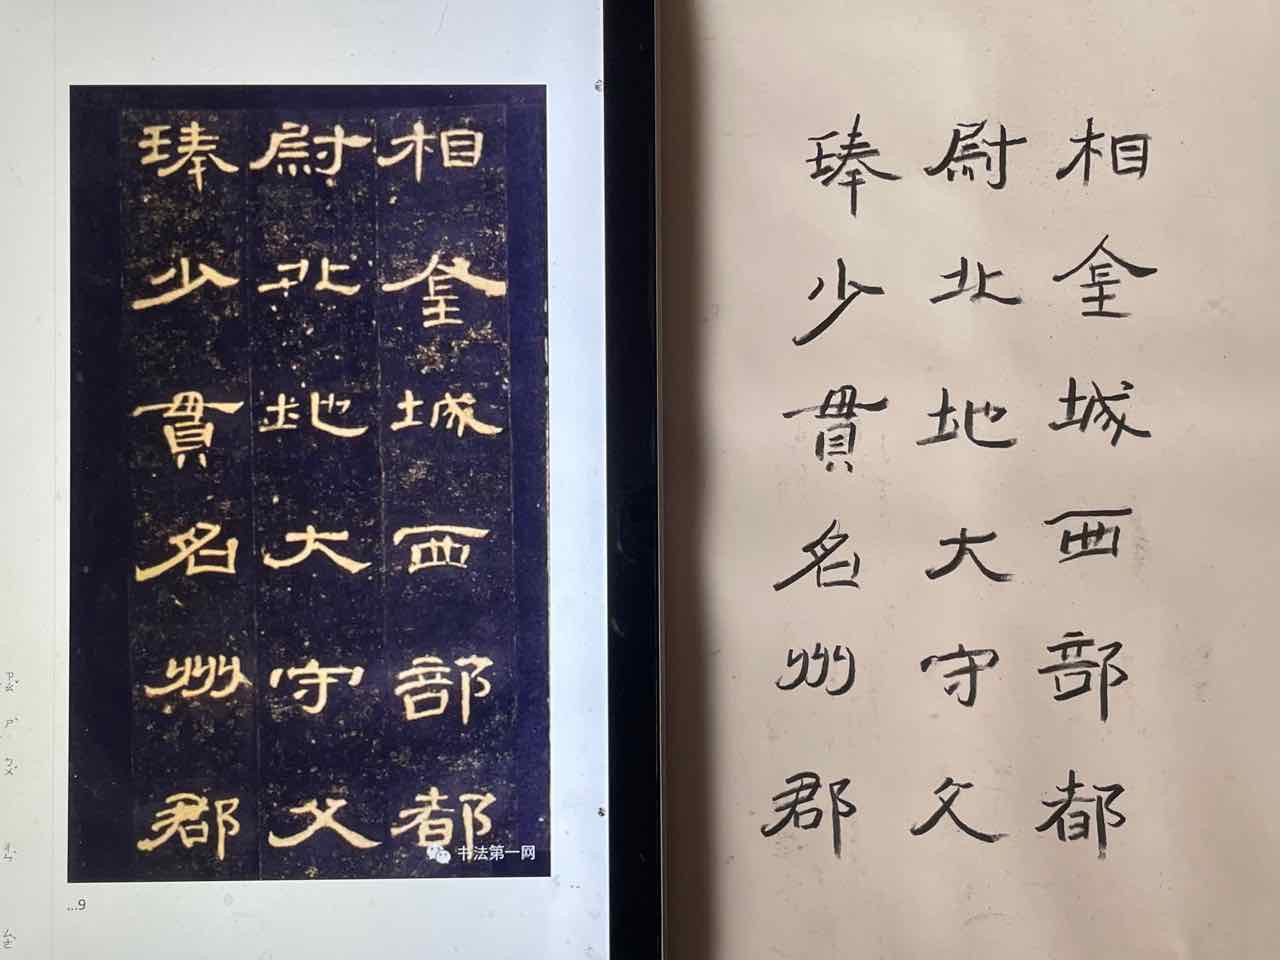 相金城西部都
尉北地大守父
琫少貫名州郡
书法第一网
...9
相金城西部都
尉北地大守父
琫少貫名州郡